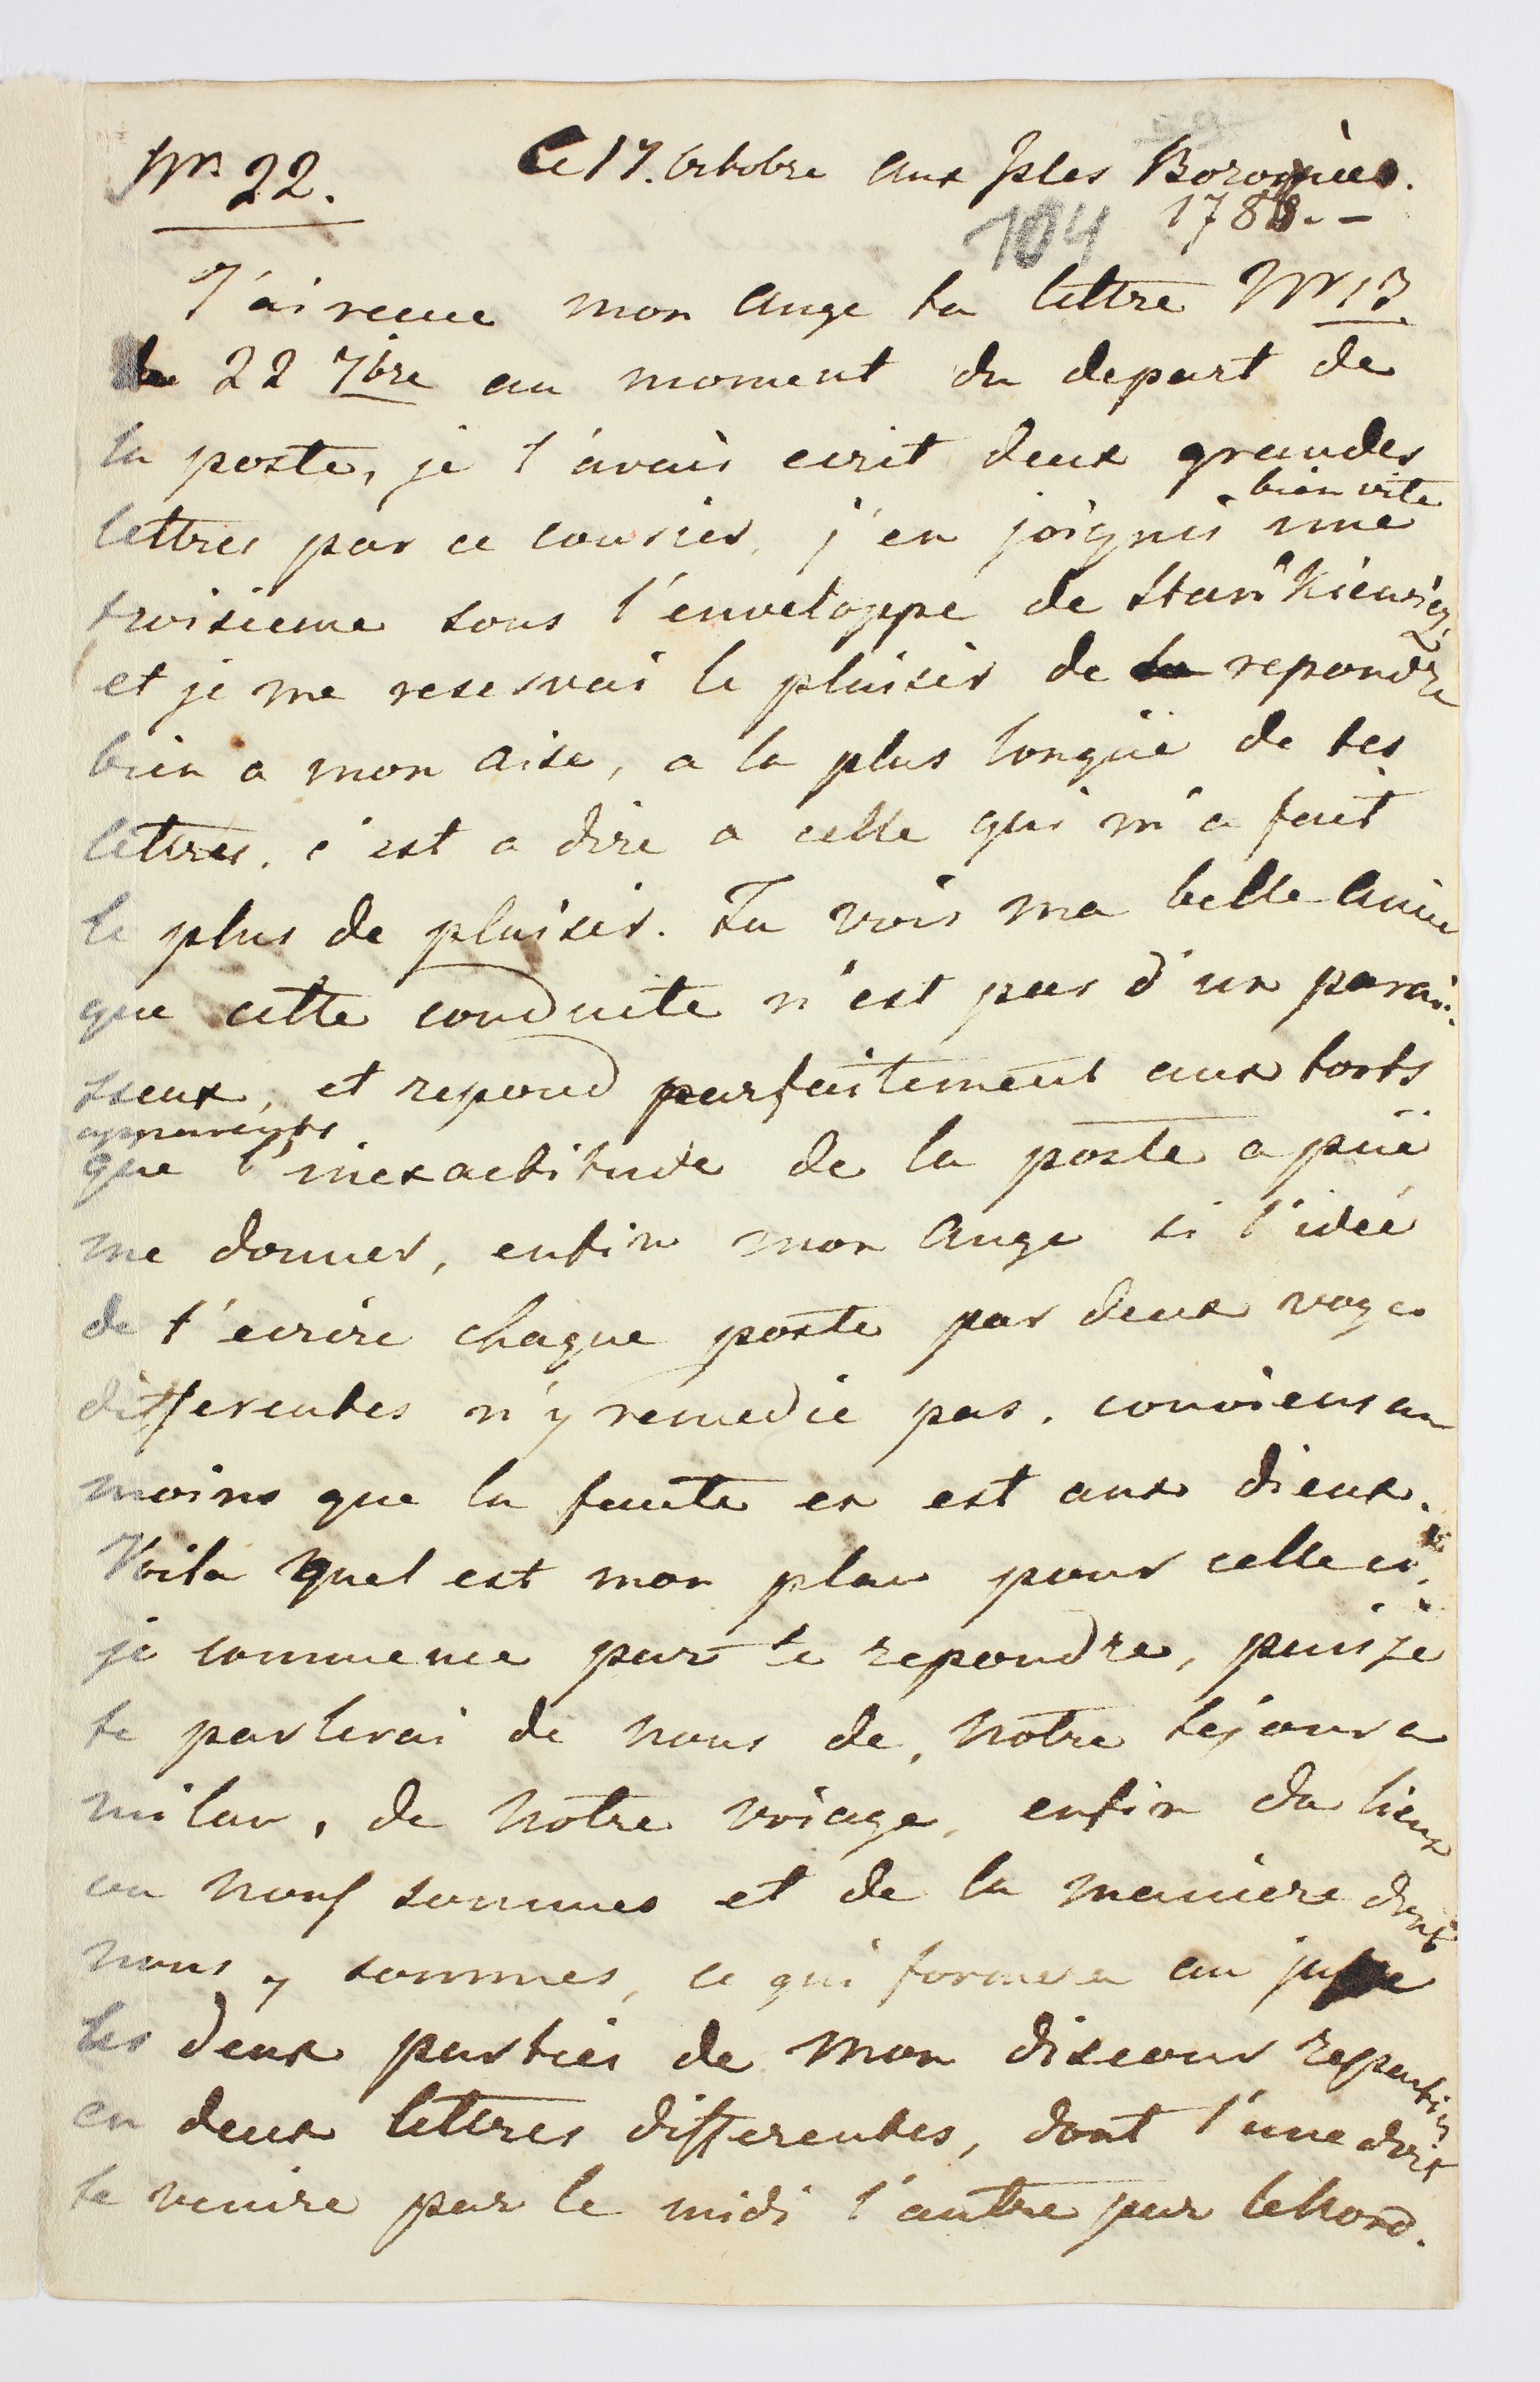 Nro 22. Ce 17. Octobre aux Isles Boromées.
104 1788. -
J'ai recue mon Ange ta lettre Nr 13
de 22 7bre au moment du depart de
la poste, je t'avais ecrit deux grandes
bien vite
lettres par ce courier, j'en joignis une
troisieme sous l'enveloppe de Stankiewicz
et je me reservai le plaisir de repondre
bien a mon aise, a la plus longüe de tes
lettres. c'est a dire a celle qui m'a fait
le plus de plaisir. Tu vois ma belle Amie
que cette conduite n'est pas d'un parais-
sseux, et repond parfaitement aux torts
apparents
que l'inexactitude de la poste a püe
me donner, enfin mon Ange si l'idée
de t'ecrire chaque poste par deux voyes
differentes n'y remedie pas. conviens au
moins que la faute en est aux dieux.
Voila quel est mon plan pour celle ci.
je commence par te repondre, puis je
te parlerai de nous de, notre sejour a
milan, de notre voiage, enfin du lieux
ou nous sommes et de la maniere dont
nous y sommes, ce qui formera au juste
les deux parties de mon discours reparties
en deux lettres differentes, dont l'une doit
te venire par le midi l'autre par le Nord.